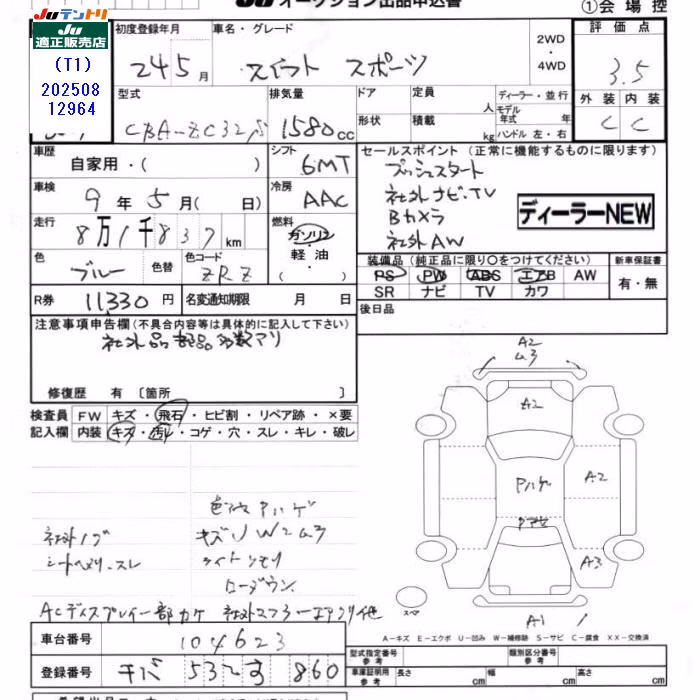 Juテントリ Ju オークション出品申込書 ①会場控
Ju
適正販売店
(T1)
202508
12964
初度登録年月 車名・グレード 2WD・4WD 評価点
24 5月 スイフト スポーツ 3.5
型式 排気量 ドア 定員 人 ディーラー・並行 外装 内装
CBA-ZC32S 1580cc 形状 積載 kg モデル年式 年 ハンドル 左・右 C C
車歴 自家用・( ) シフト 6MT セールスポイント(正常に機能するものに限ります)
プッシュスタート
車検 9年5月(日) 冷房 AAC 社外ナビ・TV
Bカメラ
社外AW
ディーラーNEW
走行 8万1千837km 燃料 ガソリン・軽油・
色 ブルー 色替 色コード ZRZ
装備品(純正品に限り○をつけてください) 新車保証書
PS PW ABS エアB AW 有・無
SR ナビ TV カワ
R券 11,330円 名変通知期限 月 日
後日品
注意事項申告欄(不具合内容等は具体的に記入して下さい)
社外品部品多数アリ
修復歴 有〔箇所 〕
検査員 FW キズ・飛石・ヒビ割・リペア跡・×要
記入欄 内装 キズ・汚レ・コゲ・穴・スレ・キレ・破レ
A2
A2
Pハゲ A2
A3
A1
スペア
Pハゲ
社外ノブ キズ
シートヘタリ・スレ ライトクモリ
ローダウン
ACディスプレイ一部カケ 社外マフラー エアクリ他
A-キズ E-エクボ U-凹み W-補修跡 S-サビ C-腐食 XX-交換済
車台番号 104623
登録番号 チバ 53 す 860
型式指定番号 参考 類別区分番号 参考
車庫証明用 参考 長さ cm 幅 cm 高さ cm